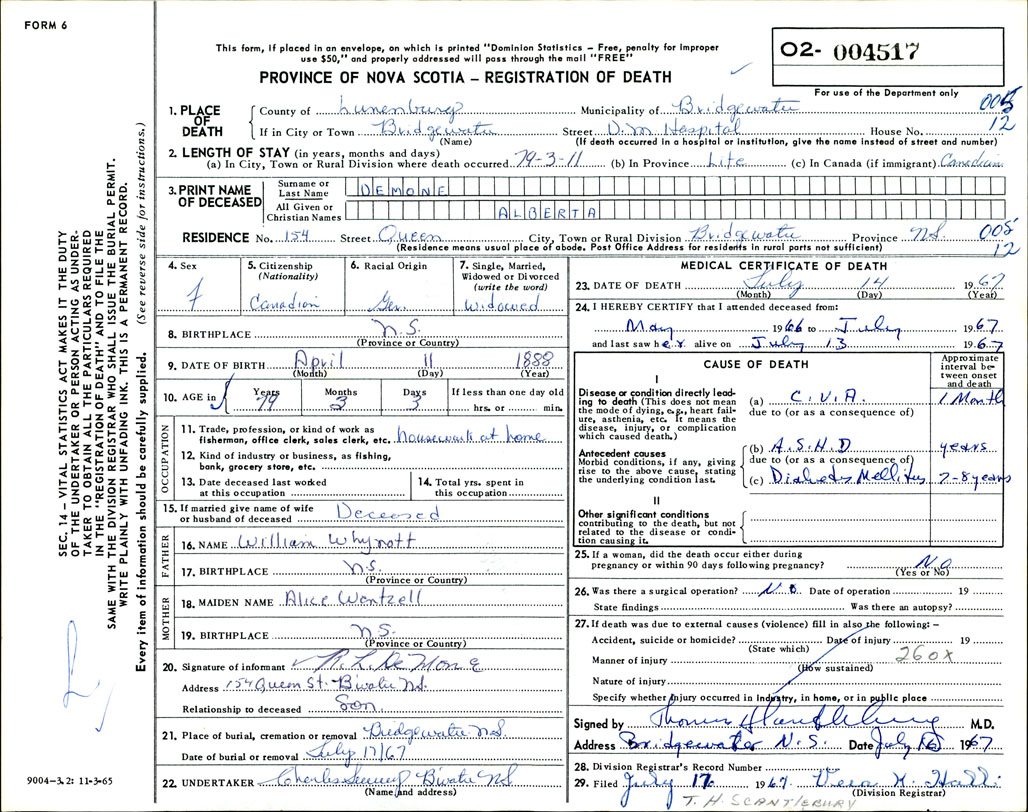 FORM 6
This form, if placed in an envelope, on which is printed "Dominion Statistics – Free, penalty for improper
use $50," and properly addressed will pass through the mail "FREE"
PROVINCE OF NOVA SCOTIA – REGISTRATION OF DEATH
02- 004517
For use of the Department only
SEC. 14 – VITAL STATISTICS ACT MAKES IT THE DUTY
OF THE UNDERTAKER OR PERSON ACTING AS UNDER-
TAKER TO OBTAIN ALL THE PARTICULARS REQUIRED
IN THE "REGISTRATION OF DEATH" AND TO FILE THE
SAME WITH THE DIVISION REGISTRAR WHO SHALL ISSUE THE BURIAL PERMIT.
WRITE PLAINLY WITH UNFADING INK. THIS IS A PERMANENT RECORD.
Every item of information should be carefully supplied. (See reverse side for instructions.)
1. PLACE OF DEATH
County of Lunenburg Municipality of Bridgewater
If in City or Town Bridgewater Street D.M. Hospital House No. 12
(Name) (If death occurred in a hospital or institution, give the name instead of street and number)
2. LENGTH OF STAY (in years, months and days)
(a) In City, Town or Rural Division where death occurred 79-3-11 (b) In Province Life (c) In Canada (if immigrant) Canadian
3. PRINT NAME OF DECEASED
Surname or Last Name DEMONE
All Given or Christian Names ALBERTA
RESIDENCE No. 154 Street Queen City, Town or Rural Division Bridgewater Province N.S. 008
(Residence means usual place of abode. Post Office Address for residents in rural parts not sufficient) 12
4. Sex F
5. Citizenship (Nationality) Canadian
6. Racial Origin Ger.
7. Single, Married, Widowed or Divorced (write the word) Widowed
8. BIRTHPLACE N.S.
(Province or Country)
9. DATE OF BIRTH April 11 1888
(Month) (Day) (Year)
10. AGE in Years 79 Months 3 Days 3 If less than one day old hrs. or min.
OCCUPATION
11. Trade, profession, or kind of work as
fisherman, office clerk, sales clerk, etc. housework at home
12. Kind of industry or business, as fishing,
bank, grocery store, etc.
13. Date deceased last worked
at this occupation
14. Total yrs. spent in
this occupation
15. If married give name of wife
or husband of deceased Deceased
FATHER
16. NAME William Whynott
17. BIRTHPLACE N.S.
(Province or Country)
MOTHER
18. MAIDEN NAME Alice Wentzell
19. BIRTHPLACE N.S.
(Province or Country)
20. Signature of informant R. L. DeMone
Address 154 Queen St. B'water N.S.
Relationship to deceased Son.
21. Place of burial, cremation or removal Bridgewater N.S.
Date of burial or removal July 17/67
22. UNDERTAKER Charles B'water N.S.
(Name and address)
9004-3.21: 11-3-65
MEDICAL CERTIFICATE OF DEATH
23. DATE OF DEATH July 14 1967
(Month) (Day) (Year)
24. I HEREBY CERTIFY that I attended deceased from:
May 1966 to July 1967
and last saw her alive on July 13 1967
CAUSE OF DEATH
Approximate interval between onset and death
I
Disease or condition directly leading to death (This does not mean the mode of dying, e.g., heart failure, asthenia, etc. It means the disease, injury, or complication which caused death.)
(a) C.V.A. 1 Month
due to (or as a consequence of)
Antecedent causes
Morbid conditions, if any, giving rise to the above cause, stating the underlying condition last.
(b) A.S.H.D years
due to (or as a consequence of)
(c) Diabetes Mellitus 7-8 years
II
Other significant conditions
contributing to the death, but not related to the disease or condition causing it.
25. If a woman, did the death occur either during
pregnancy or within 90 days following pregnancy? No
(Yes or No)
26. Was there a surgical operation? No Date of operation 19
State findings Was there an autopsy?
27. If death was due to external causes (violence) fill in also the following: –
Accident, suicide or homicide? Date of injury 19
(State which)
Manner of injury 260X
(How sustained)
Nature of injury
Specify whether injury occurred in Industry, in home, or in public place
Signed by M.D.
Address Bridgewater N.S. Date July 1967
28. Division Registrar's Record Number
29. Filed July 17 1967.
(Division Registrar)
T. H. SCANTLEBURY